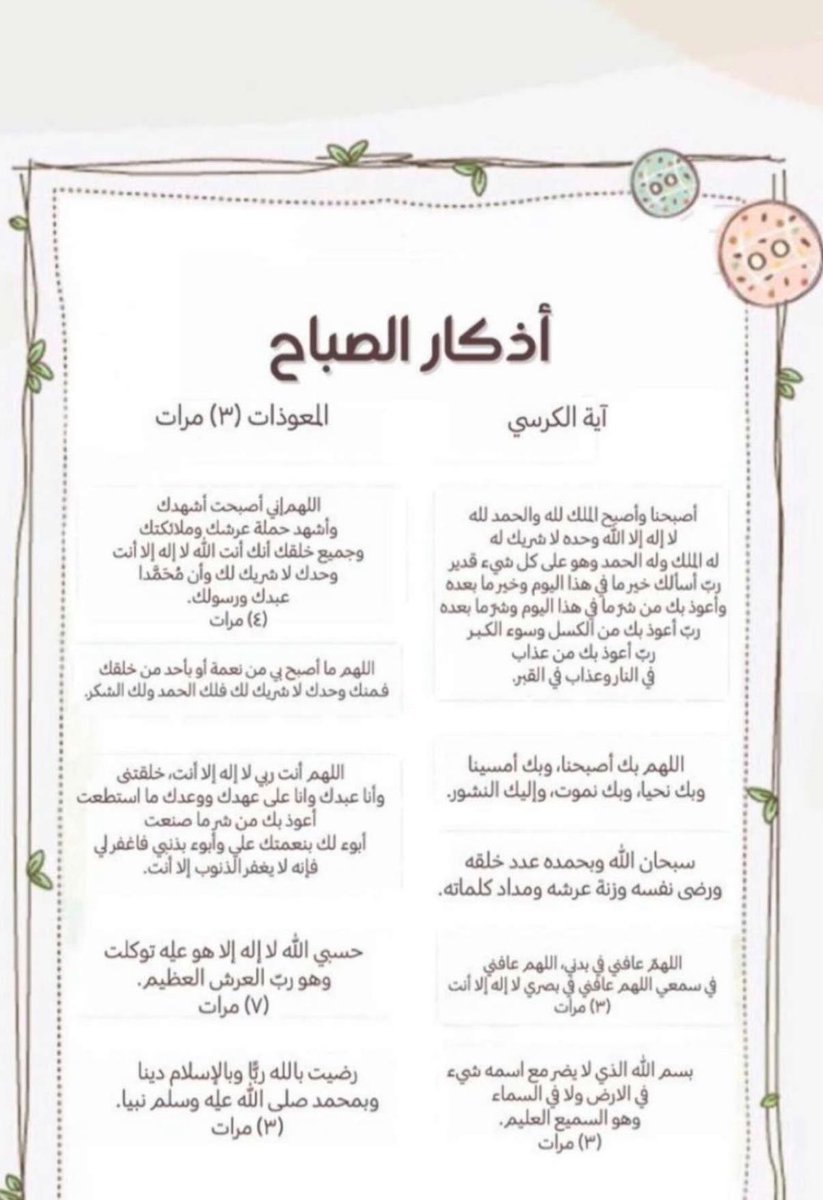 أذكار الصباح
آية الكرسي
أصبحنا وأصبح الملك لله والحمد لله
لا إله إلا الله وحده لا شريك له
له الملك وله الحمد وهو على كل شيء قدير
ربّ أسألك خير ما في هذا اليوم وخير ما بعده
وأعوذ بك من شرّ ما في هذا اليوم وشرّ ما بعده
ربّ أعوذ بك من الكسل وسوء الكبر
ربّ أعوذ بك من عذاب
في النار وعذاب في القبر.
اللهم بك أصبحنا، وبك أمسينا
وبك نحيا، وبك نموت، وإليك النشور.
سبحان الله وبحمده عدد خلقه
ورضى نفسه وزنة عرشه ومداد كلماته.
اللهمّ عافني في بدني، اللهم عافني
في سمعي اللهم عافني في بصري لا إله إلا أنت
(٣) مرات
بسم الله الذي لا يضر مع اسمه شيء
في الارض ولا في السماء
وهو السميع العليم.
(٣) مرات
المعوذات (٣) مرات
اللهم إني أصبحت أشهدك
وأشهد حملة عرشك وملائكتك
وجميع خلقك أنك أنت الله لا إله إلا أنت
وحدك لا شريك لك وأن مُحَمَّدا
عبدك ورسولك.
(٤) مرات
اللهم ما أصبح بي من نعمة أو بأحد من خلقك
فمنك وحدك لا شريك لك فلك الحمد ولك الشكر.
اللهم أنت ربي لا إله إلا أنت، خلقتنى
وأنا عبدك وانا على عهدك ووعدك ما استطعت
أعوذ بك من شر ما صنعت
أبوء لك بنعمتك علي وأبوء بذنبي فاغفر لي
فإنه لا يغفر الذنوب إلا أنت.
حسبي الله لا إله إلا هو عليه توكلت
وهو ربّ العرش العظيم.
(٧) مرات
رضيت بالله ربًّا وبالإسلام دينا
وبمحمد صلى الله عليه وسلم نبيا.
(٣) مرات